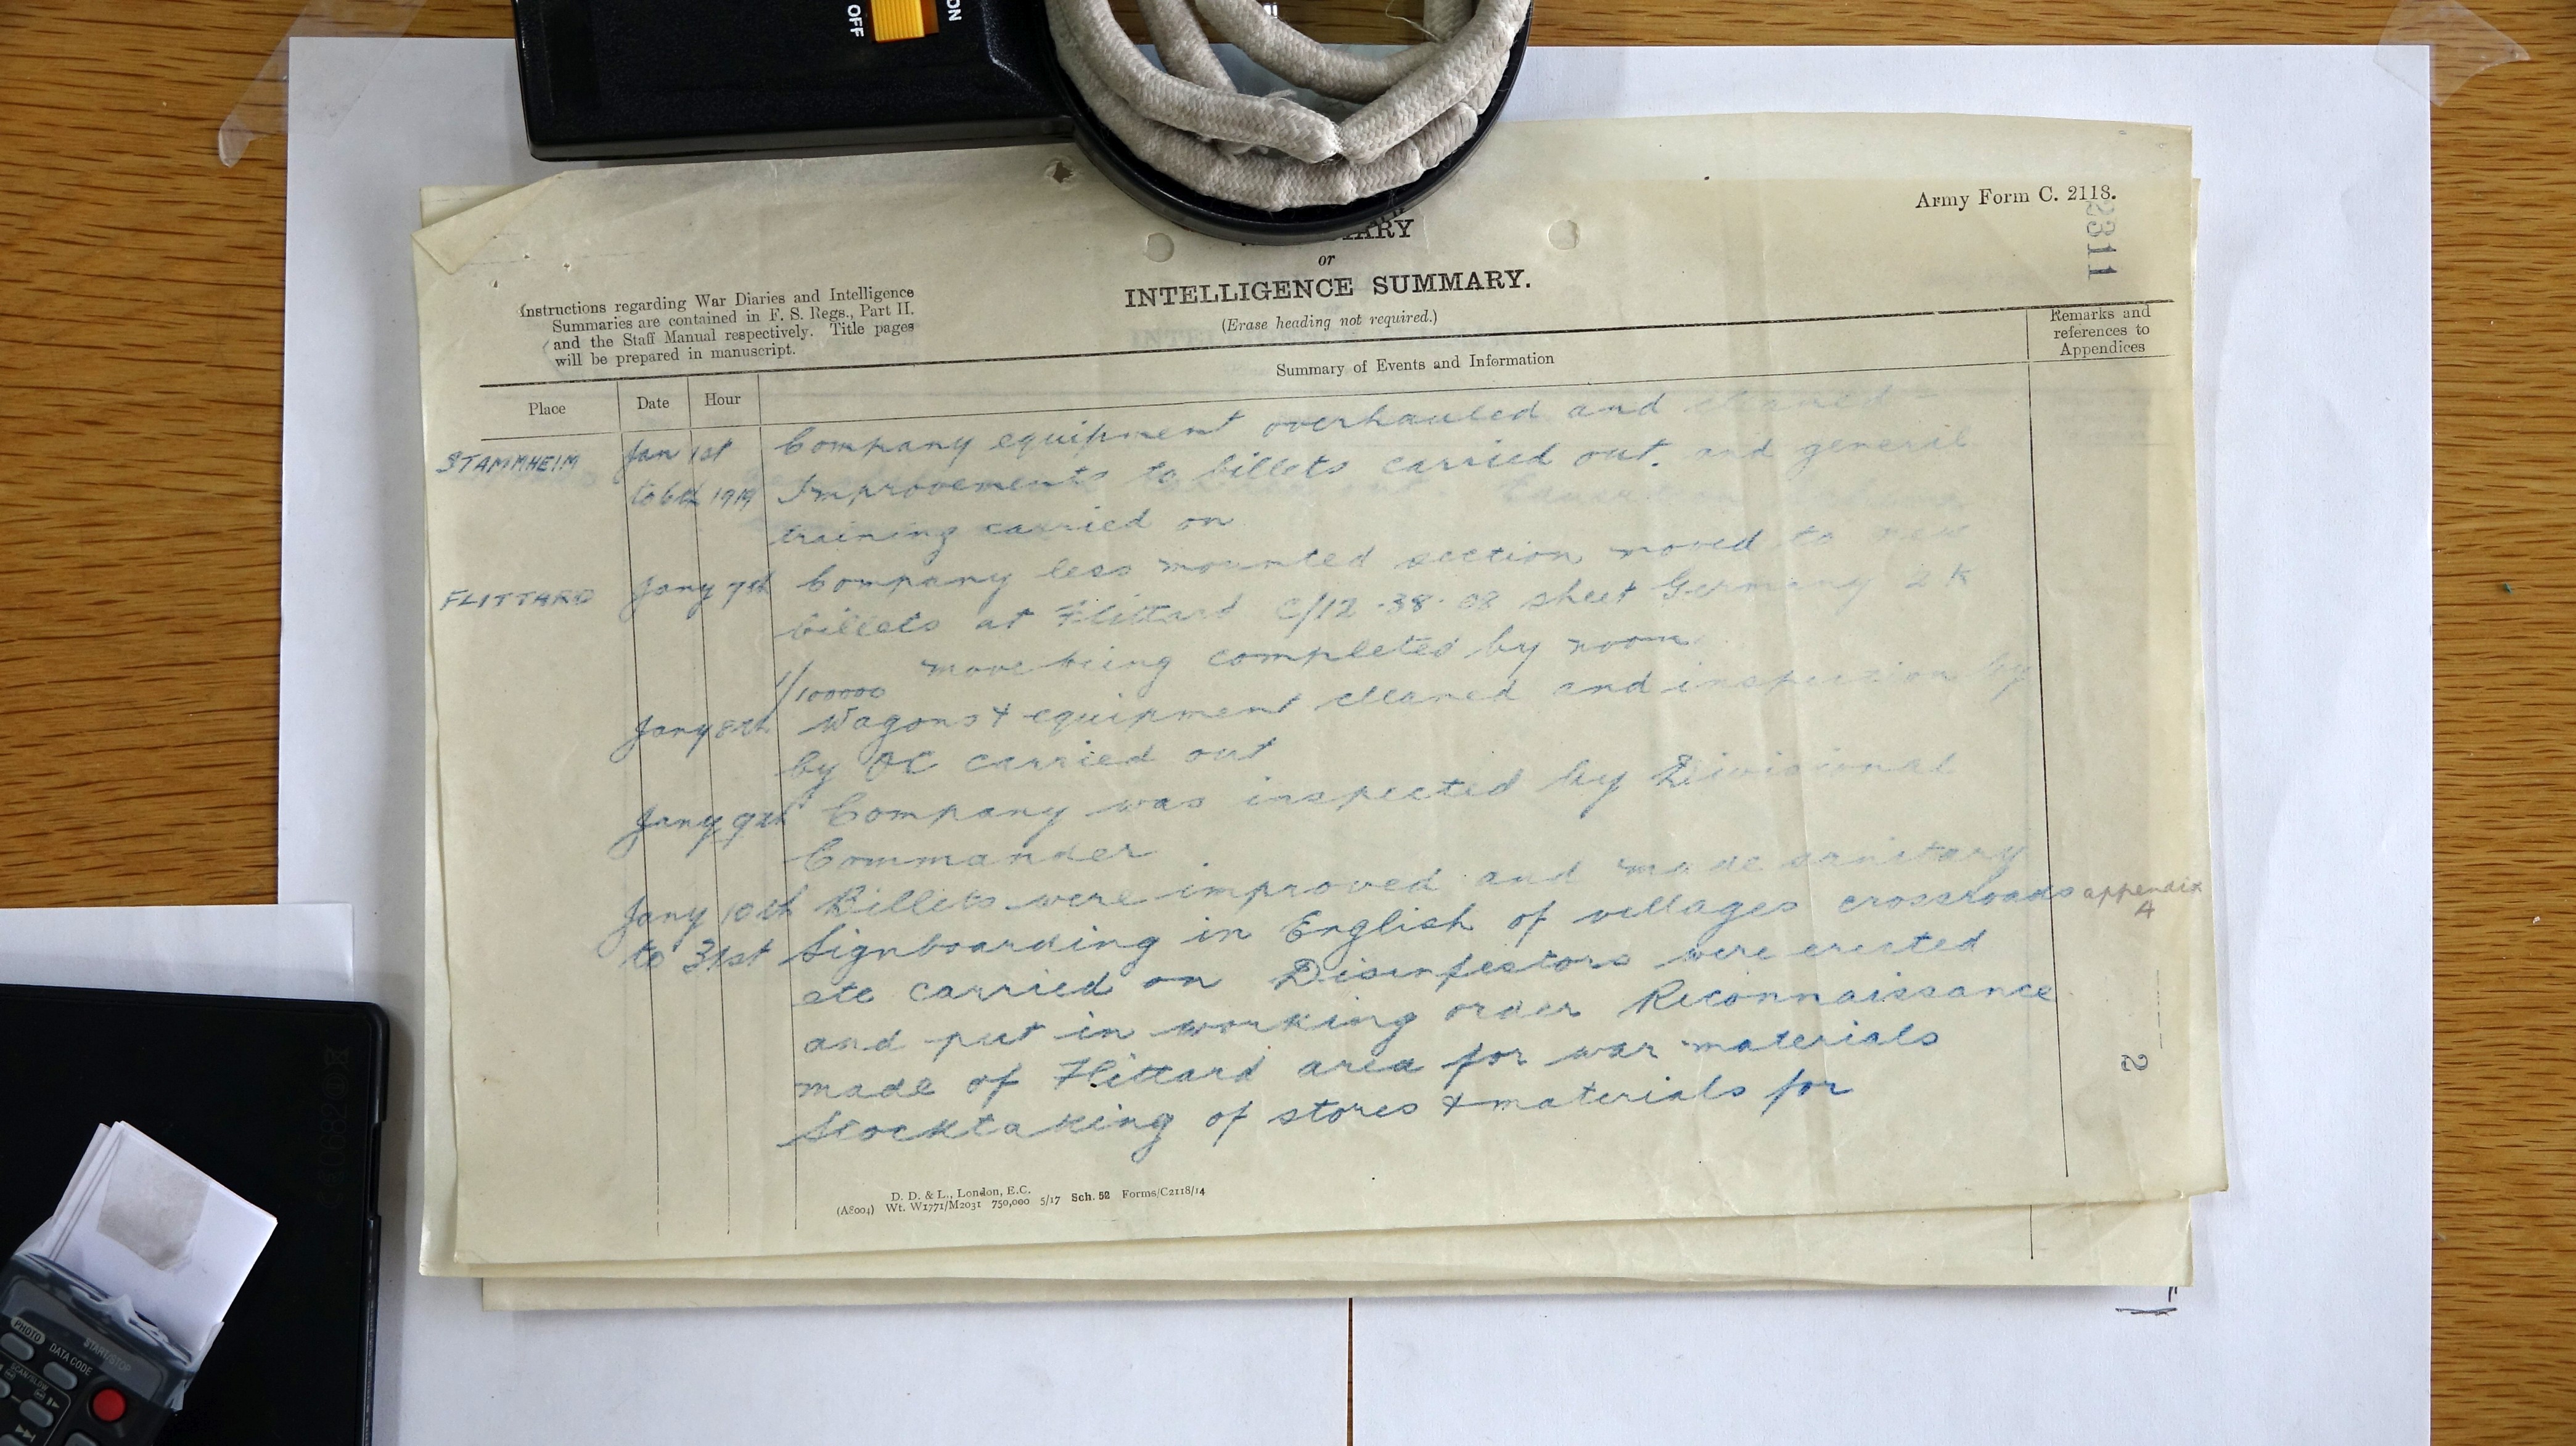 ON
OFF
Army Form C. 2118.
2311
ARY
or
INTELLIGENCE SUMMARY.
(Erase heading not required.)
Instructions regarding War Diaries and Intelligence
Summaries are contained in F. S. Regs., Part II.
and the Staff Manual respectively. Title pages
will be prepared in manuscript.
Place Date Hour Summary of Events and Information Remarks and references to Appendices
STAMMHEIM Jan 1st Company equipment overhauled and cleaned
to 6th 1919 Improvements to billets carried out. and general
training carried on
FLITTARD Jany 7th Company less mounted section moved to new
billets at Flittard C/12.38.08 sheet Germany 2K
1/100000 move being completed by noon
Jany 8th Wagons & equipment cleaned and inspection by
by OC carried out
Jany 9th Company was inspected by Divisional
Commander
Jany 10th Billets were improved and made sanitary
to 31st Signboarding in English of villages crossroads appendix A
etc carried on Disinfestors were erected
and put in working order Reconnaissance
made of Flittard area for war materials
Stocktaking of stores & materials for
2
D. D. & L., London, E.C.
(A8004) Wt. W1771/M2031 750,000 5/17 Sch. 52 Forms/C2118/14
PHOTO
DATA CODE
START/STOP
SCAN/SLOW